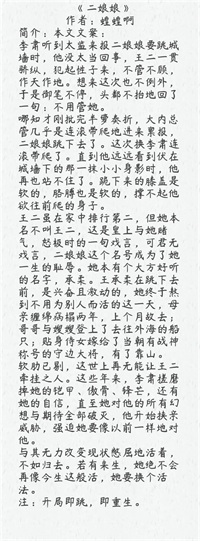 《二娘娘》
作者：蝗蝗啊
简介：本文文案：
李肃听到太监来报二娘娘要跳城
墙时，他没太当回事，王二一贯
骄纵，犯起性子来，不管不顾，
作天作地。想来这次也不例外，
于是御笔不停，头都不抬地回了
一句：不用管她。
哪知才刚批完半摞奏折，大内总
管几乎是连滚带爬地进来累报，
二娘娘跳下去了。这次换李肃连
滚带爬了。直到他远远看到伏在
城墙下的那一抹小小身影时，他
再也站不住了。跪下来的膝盖是
软的，胳膊也是软的，撑不起他
欲往前爬的身子。
王二虽在家中排行第二，但她本
名不叫王二，这是皇上与她赌
气，怒极时的一句戏言，可君无
戏言，二娘娘这个名号成为了她
一生的耻辱。她本有个大方好听
的名字，承柔。王承柔在跳下去
前，是兴奋且激动的，她终于熬
到不用为别人而活的这一天，母
亲缠绵病榻两年，上个月故去；
哥哥与嫂嫂登上了去往外海的船
只；贴身侍女嫁给了当朝有战神
称号的守边大将，有了靠山。
软肋已剔，这世上再无能让王二
牵挂之人。这些年来，李肃搓磨
掉她的铠甲、傲骨、锋芒，还有
她的自信，直至她对他的所有幻
想与期待全部破灭，他开始挟亲
威胁，强迫她要像以前一样地对
他。
与其无力改变现状憋屈地活着，
不如归去。若有来生，她绝不会
再像今生这般活，她要换个活
法。
注：开局即跳，即重生。